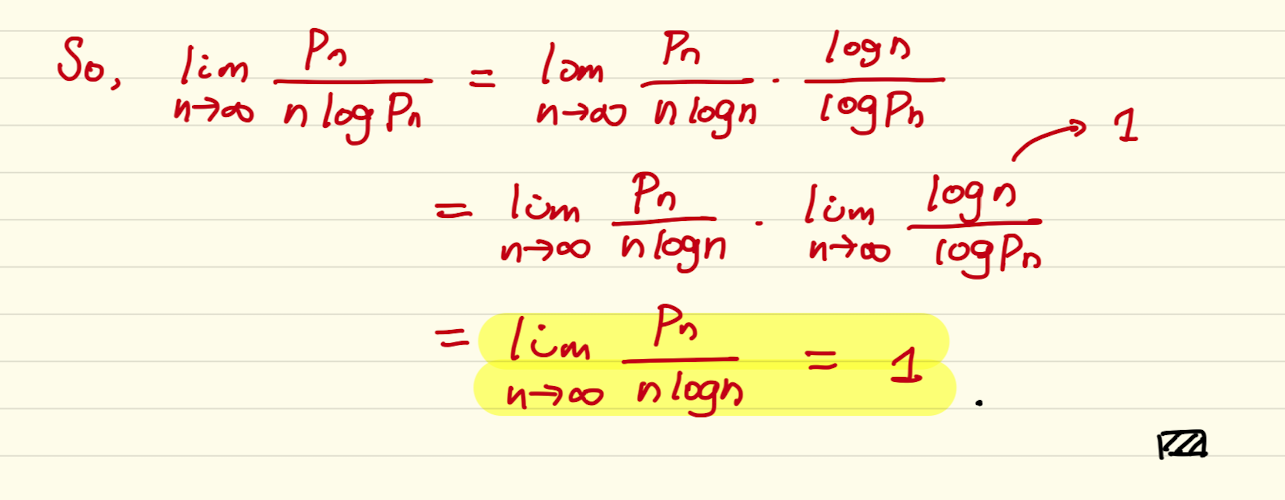 So, lim n→∞ Pn / (n log Pn) = lim n→∞ Pn / (n log n) · log n / log Pn
= lim n→∞ Pn / (n log n) · lim n→∞ log n / log Pn → 1
= lim n→∞ Pn / (n log n) = 1 .